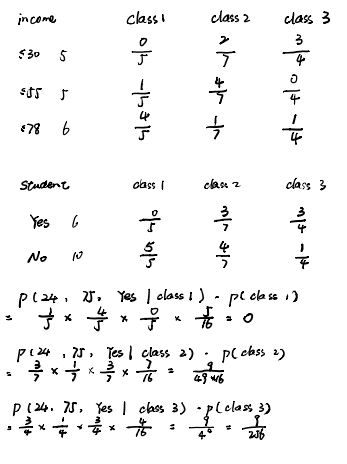 income class 1 class 2 class 3
≤30 5 0/5 2/7 3/4
≤55 5 1/5 4/7 0/4
≤78 6 4/5 1/7 1/4
Student class 1 class 2 class 3
Yes 6 0/5 3/7 3/4
No 10 5/5 4/7 1/4
P(24, 75, Yes | class 1) · P(class 1)
= 1/5 × 4/5 × 0/5 × 5/16 = 0
P(24, 75, Yes | class 2) · P(class 2)
= 3/7 × 1/7 × 3/7 × 7/16 = 9/49×16
P(24, 75, Yes | class 3) · P(class 3)
= 3/4 × 1/4 × 3/4 × 4/16 = 9/4⁴ = 9/256